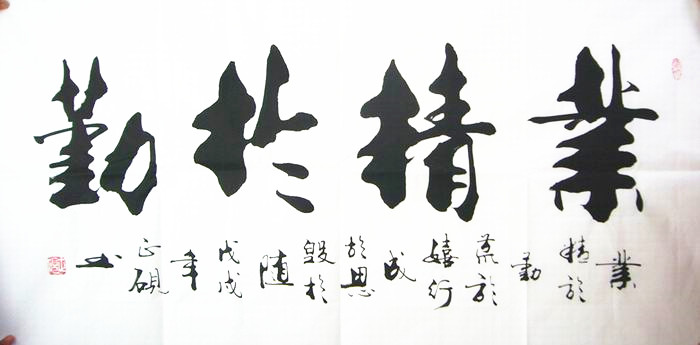 業精於勤
業
精於
勤
荒於
嬉行
成
於思
毀於
随
戊戌
年
正硯
书